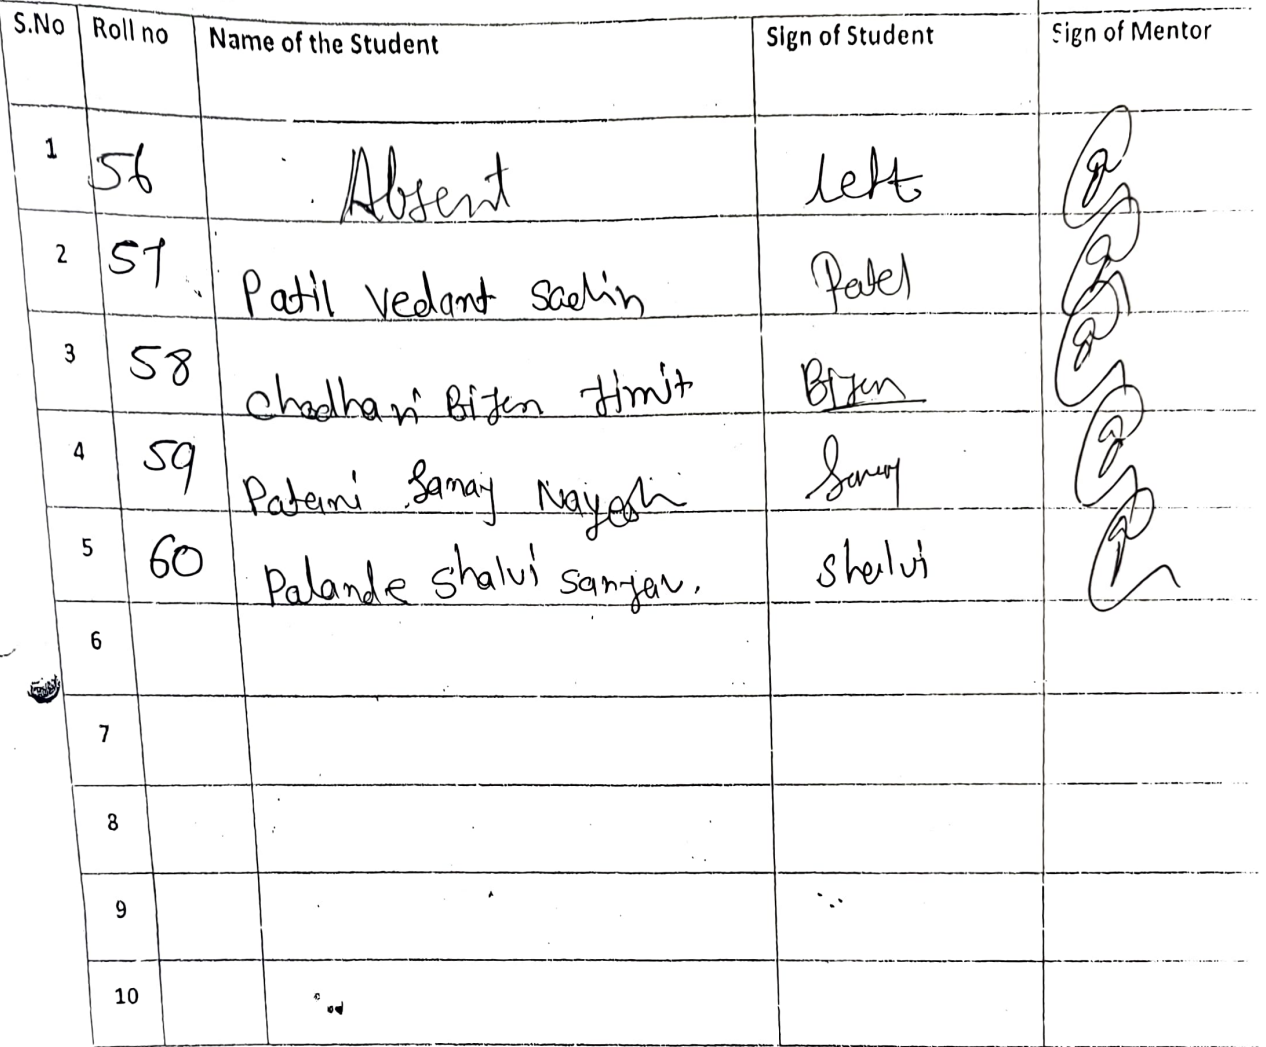 S.No Roll no Name of the Student Sign of Student Sign of Mentor
1 56 Absent left
2 57 Patil Vedant Sachin Patel
3 58 Chodhari Bijen Jimit Bijen
4 59 Patani Samay Nayesh Samay
5 60 Palande Shalvi Sanjay. Shalvi
6
7
8
9
10